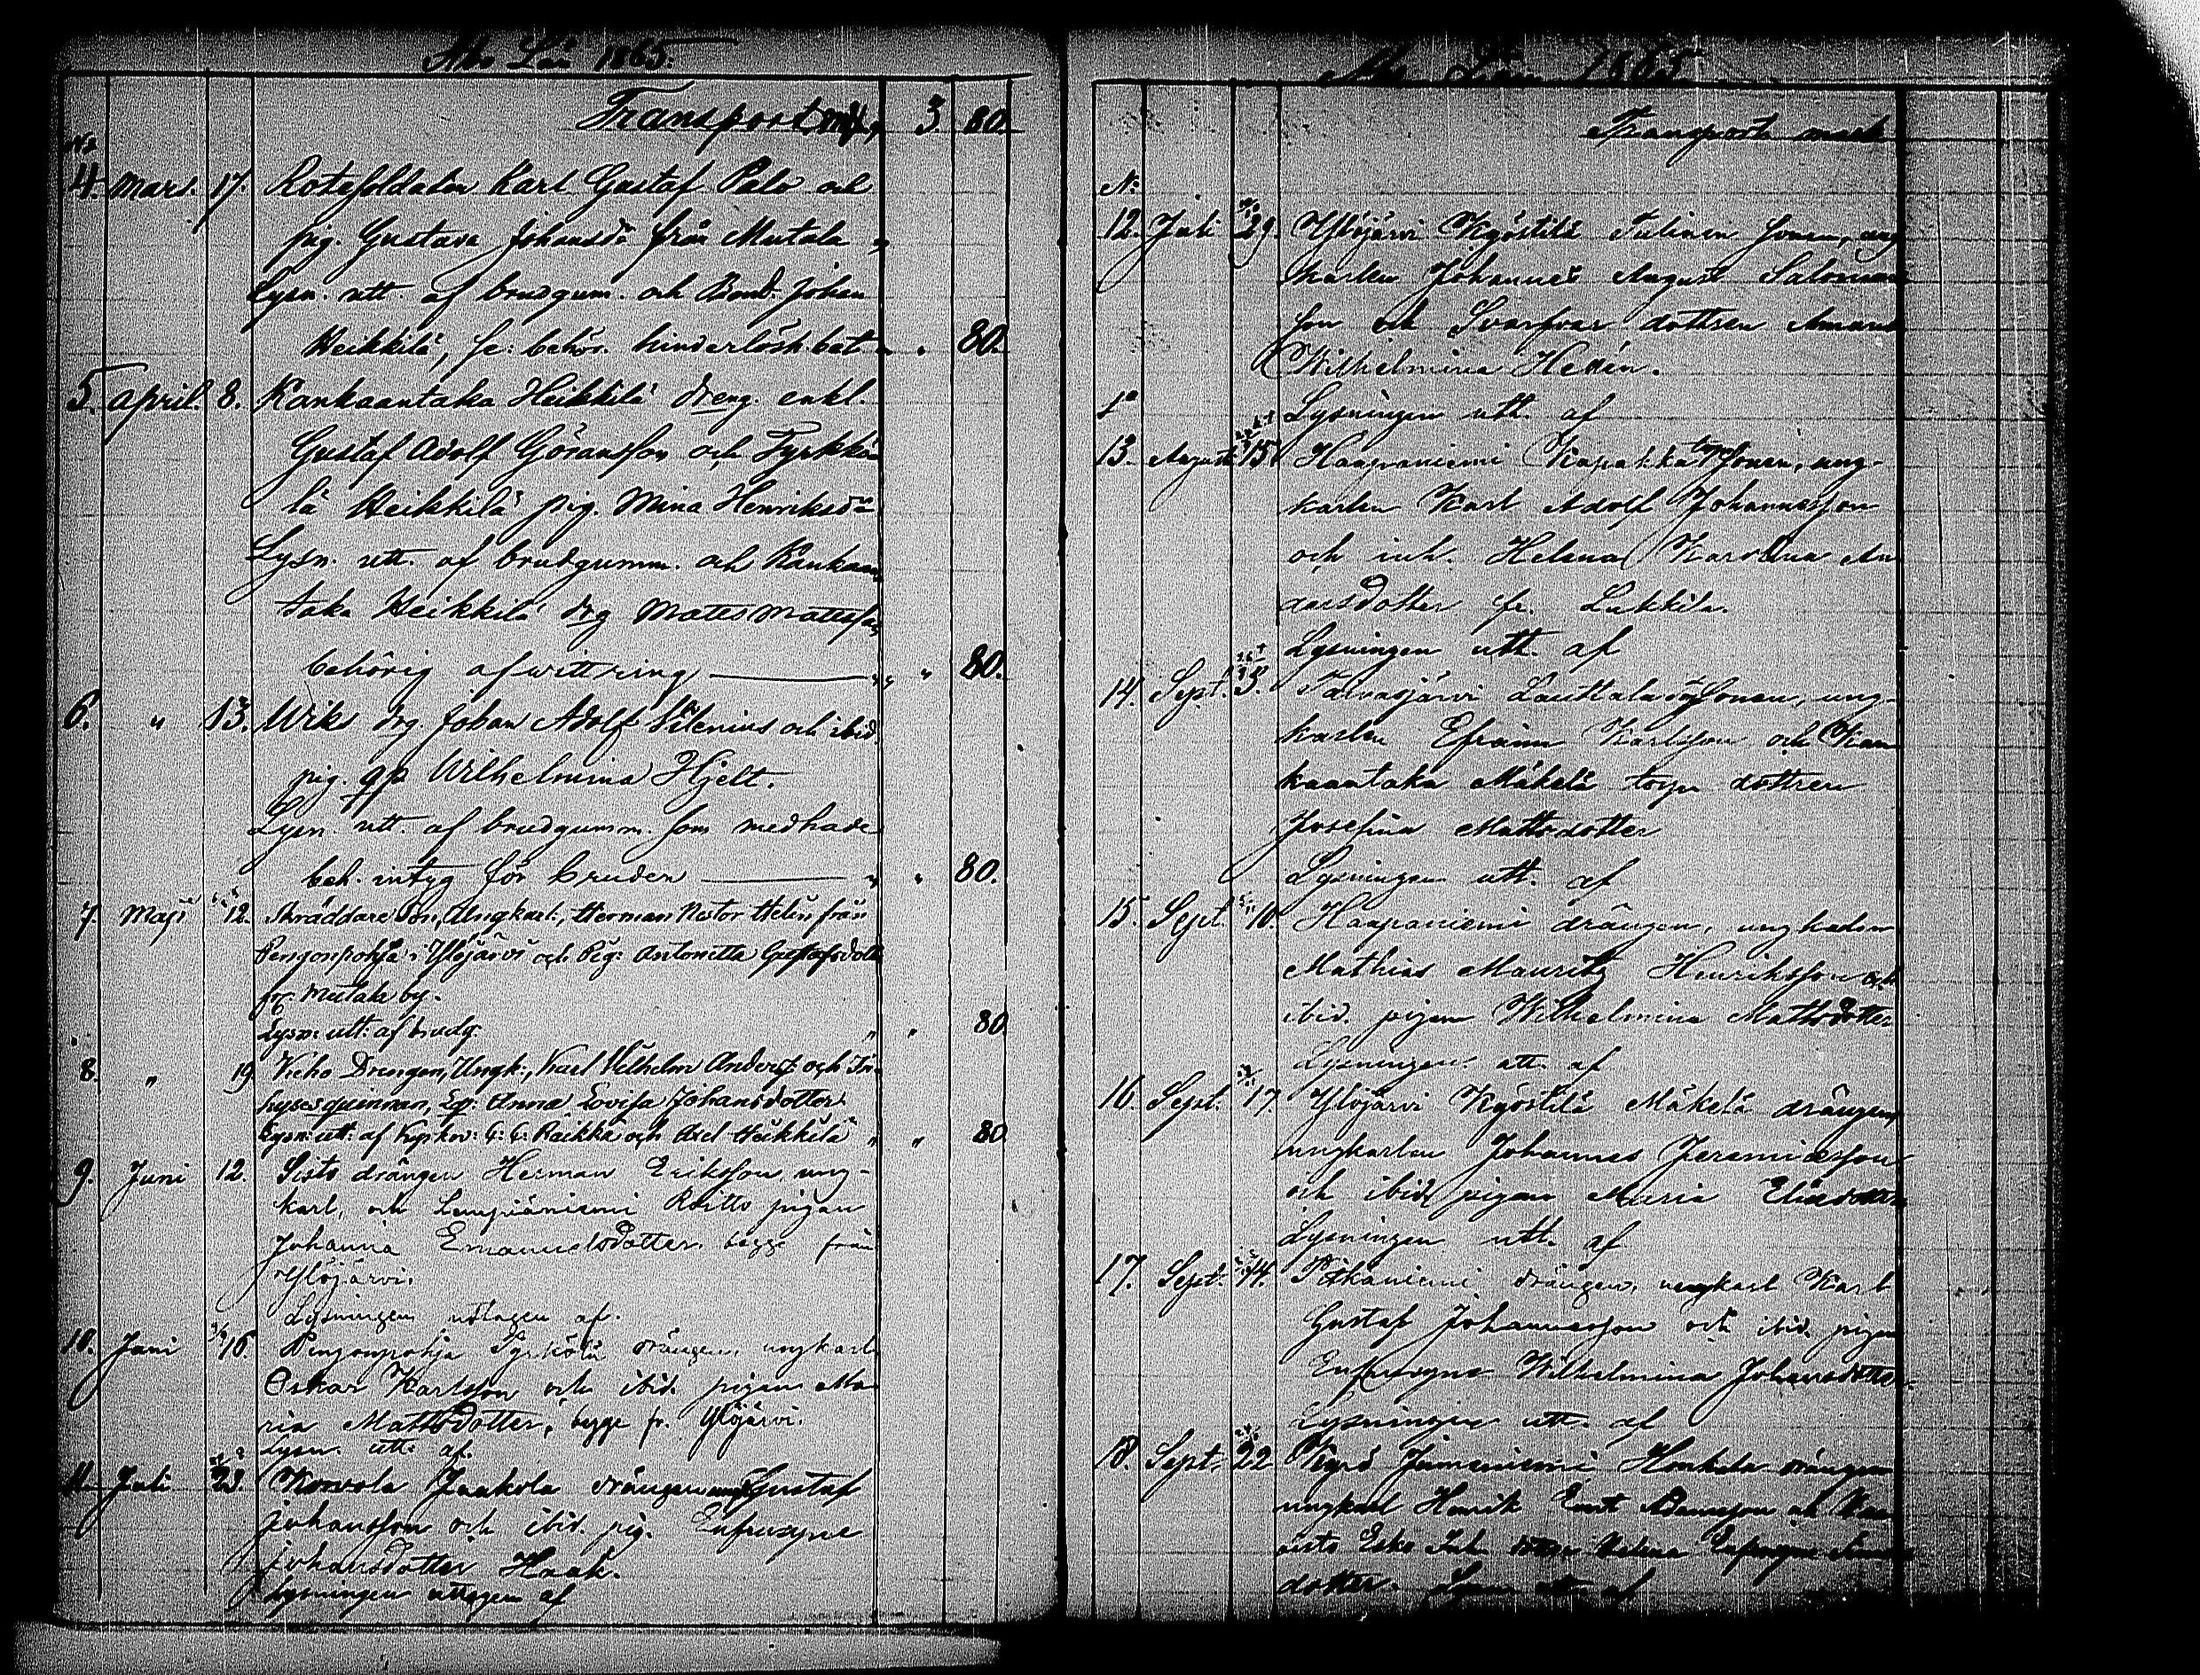 Åbo Län 1865.
Transport mk, 3. 80.
No
4. Mars. 17. Rotesoldaten Karl Gustaf Palo och
pig. Gustava Johansdr från Mutala
Lysn. utt. af brudgum. och Bond. Johan
Heikkilä, se: behör. hinderlösh. bet. " " 80.
5. April. 8. Kankaantaka Heikkilä dreng. enkl.
Gustaf Adolf Göransson och Tyrkkö-
lä Heikkilä pig. Mina Henriksdr
Lysn. utt. af brudgumm. och Kankaan
taka Heikkilä drg Mats Matsson
behörig afwittring " " 80.
6. " 13. Wik drg. Johan Adolf Silenius och ibid.
pig. Wilhelmina Hjelt.
Lysn. utt. af brudgumm. som medhade
beh. intyg för bruden " " 80.
7. Maji 12. Skräddare Son, Ungkarl., Herman Nestor Helin från
Pengonpohja i Ylöjärvi och Pig: Antonetta Gustafsdott
fr. Mutala by.
Lysn: utt: af brudg. " " 80
8. " 19 Keho Drengen, Ungk:, Karl Wilhelm Anderss: och In-
hyses quinnan, Eq: Anna Lovisa Johansdotter.
Lysn: utt. af Raikka och Axel Heikkilä " " 80
9. Juni 12. Sisto drängen Herman Eriksson, ung-
karl, och Lempiäniemi Roitto pigan
Johanna Emanuelsdotter begge från
Ylöjärvi.
Lysningen uttagen af.
10. Juni 16. Pengonpohja Tyrkölä drängen, ungkarl
Oskar Karlsson och ibid. pigan Ma-
ria Mattsdotter, begge fr. Ylöjärvi.
Lysn. utt. af.
11. Juli 23. Korvola Jaakola drängen Gustaf
Johansson och ibid. pig. Eufrosyne
Johansdotter Haak.
Lysningen uttagen af
Åbo Län 1865
Transport mark
No
12. Juli 29. Ylöjärvi Kyöstilä Tulinen sonen, ung
karlen Johannes August Salomon
son och Svarfvar dottren Amand
Wilhelmina Hedén.
Lysningen utt. af
13. Augusti 15. Haapaniemi Kapakka torp sonen, ung-
karlen Karl Adolf Johannesson
och inh. Helena Karolina An
dersdotter fr. Lukkila.
Lysningen utt. af
14. Sept. 5. Takasjärvi Lauttala sonen, ung-
karlen Efraim Karlsson och Kan
kaantaka Mäkelä torp dottren
Josefina Mattsdotter
Lysningen utt. af
15. Sept. 10. Haapaniemi drängen, ungkarlen
Mathias Mauritz Henriksson och
ibid. pigan Wilhelmina Mattsdotter
Lysningen utt. af
16. Sept. 17. Ylöjärvi Kyöstilä Mäkelä drängen,
ungkarlen Johannes Jeremiasson
och ibid. pigan Maria Eliedotter
Lysningen utt. af
17. Sept. 14. Pitkäniemi drängen, ungkarl Karl
Gustaf Johannesson och ibid. pigan
Eufrosyne Wilhelmina Johansdotter.
Lysningen utt. af
18. Sept. 22 Kyrö Jumesniemi Honkola drängen
ungkarl Henrik Ernst och
Esko Inh. Helena Eufrosyne
dotter. Lysn. utt. af